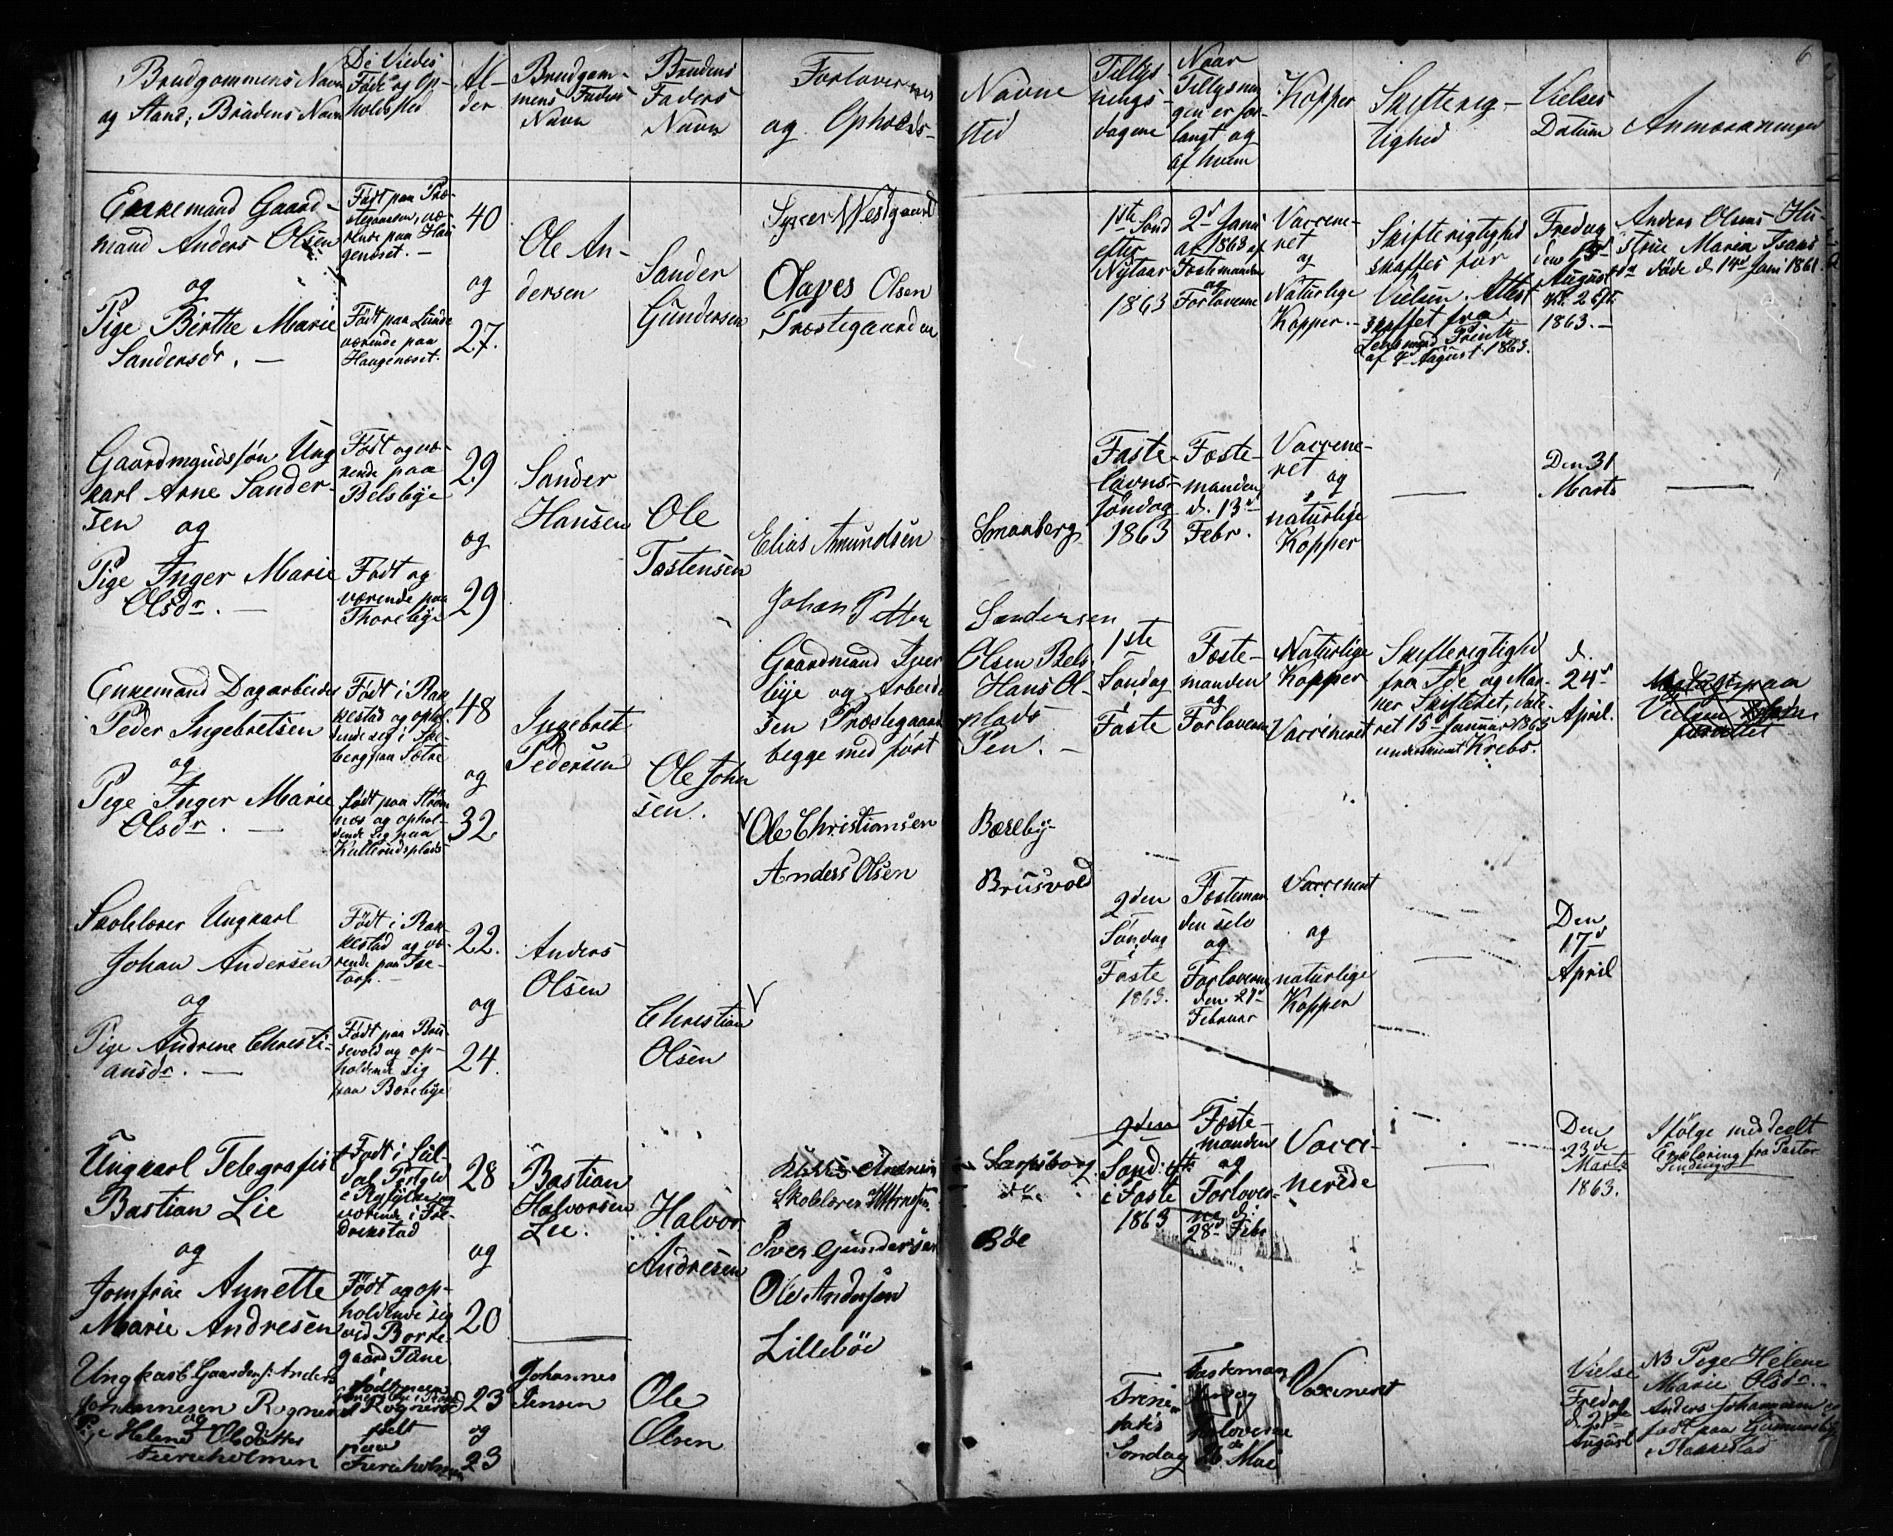 6
Brudgommens Navn
og Stand; Brudens Navn
De Viedes
Føde og Op-
holdssted
Al-
der
Brudgom-
mens Faders
Navn
Brudens
Faders
Navn
Forlovernes
og Opholds-
Navne
sted
Tillys-
nings-
dagene
Naar
Tillysnin
gen er for-
langt og
af hvem
Kopper
Skifterig-
tighed
Vielses
Datum
Anmærkninger
Enkemand Gaard-
mand Anders Olsen
og
Pige Birthe Marie
Sandersdr. —
Født paa Præ-
stegaarden, væ-
rende paa Hau
genæset. —
Født paa Lunde
værende paa
Haugenæset.
40
og
27.
Ole An-
dersen
Sander
Gundersen
Syver Westgaard
Olaves Olsen
Præstegaarden
1ste Sønd
efter
Nytaar
1863
2d Janu
ar 1863 af
Fæstemanden
og
Forloverne
Vaccine-
ret
og
Naturlige
Kopper. -
Skifterigtighed
skaffes før
Vielsen. Attest
skaffet fra
Lensmand
af 4 August 1863.
Fredag
den
August
Kl. 2 Eft.
1863. —
Anders Olsens Hu-
strue Maria
døde d. 14d Juni 1861.
Gaardmandssøn Ung
karl Arne Sander-
sen og
Pige Inger Marie
Olsdr. —
Født og væ-
rende paa
Belsbye
Født og
værende paa
Thorebye
29
og
29
Sander
Hansen
Ole
Tostensen
Elias Amundsen
Johan Petter
Smaaberg
Sandersen
Faste-
lavns-
søndag
1863
Fæste-
manden
d. 13d
Febr.
Vaccine-
ret
og
naturlige
Kopper
Den 31
Marts
Enkemand Dagarbeider
Peder Ingebretsen
og
Pige Inger Marie
Olsdr. —
Født i Rak
kestad og ophol-
dende sig i
berg paa Sætre
født paa Strøm
næs og ophol-
dende sig paa
Kullerudsplads
48
og
32.
Ingebret
Pedersen
Ole John
sen.
Gaardmand Iver
bye og Arbeide
sen Præstegaard
begge med ført
Olsen Bels
Hans Ol-
plads
Pen. —
1ste
Søndag
i
Faste
Fæste-
manden
og
Forloverne
Naturlige
Kopper
Vaccineret
Skifterigtighed
fra Ide og Mar-
ker Skifteret, date-
ret 15 Januar 1863
underskrevet Krebs.
d.
24d
April.
paa
Vielsen
Skolelærer Ungkarl
Johan Andersen
og
Pige Andrine Christi-
ansdr. —
Født i Rak-
kestad og væ-
rende paa Tve-
tarp. —
Født paa Bru-
sevold og op-
holdende sig
paa Bærebye
22.
og
24.
Anders
Olsen
Christian
Olsen
Ole Christiansen
Anders Olsen
Bærebye
Brusvold
2den
Søndag
i
Faste
1863.
Fæsteman
den selv
og
Forloverne
den 27d
Februar
Vaccineret
og
naturlige
Kopper
Den
17d
April
Ungkarl Telegrafist
Bastian Lie
og
Jomfrue Annette
Marie Andresen
Født i
dal Præstgjeld
værende i Fre-
drikstad
Født og op-
holdende sig
ved Borre-
gaard Tune
28
og
20
Bastian
Halvorsen
Lie.
Halvor
Andresen
Skolelærer
Iver Gundersen
Ole Andersen
Lillebøe
Sarpsborg
do.
Bøe
2den
Sønd: efter
i Faste
1863
Fæste-
manden
og
Forlover-
ne d:
28d Febr
Vacci-
nerede
Den
23de
Marts
1863.
I følge meddeelt
Erklæring fra Pastor
Ungkarl Gaardm.s: Anders
Johannesen Rognerød
og
Pige Helene Olsdatter
Furuholmen
født paa
Rognerød
født
paa
Furuholmen
23
og
23
Johannes
Jensen
Ole
Olsen
Trini-
tatis
Søndag
Fæsteman
den og
Forloverne
26de Mai
Vaccineret
Vielse
Fredag
d.
August
NB Pige Helene
Marie Olsdr.
Anders Johannesen er
født paa
i Rakkestad